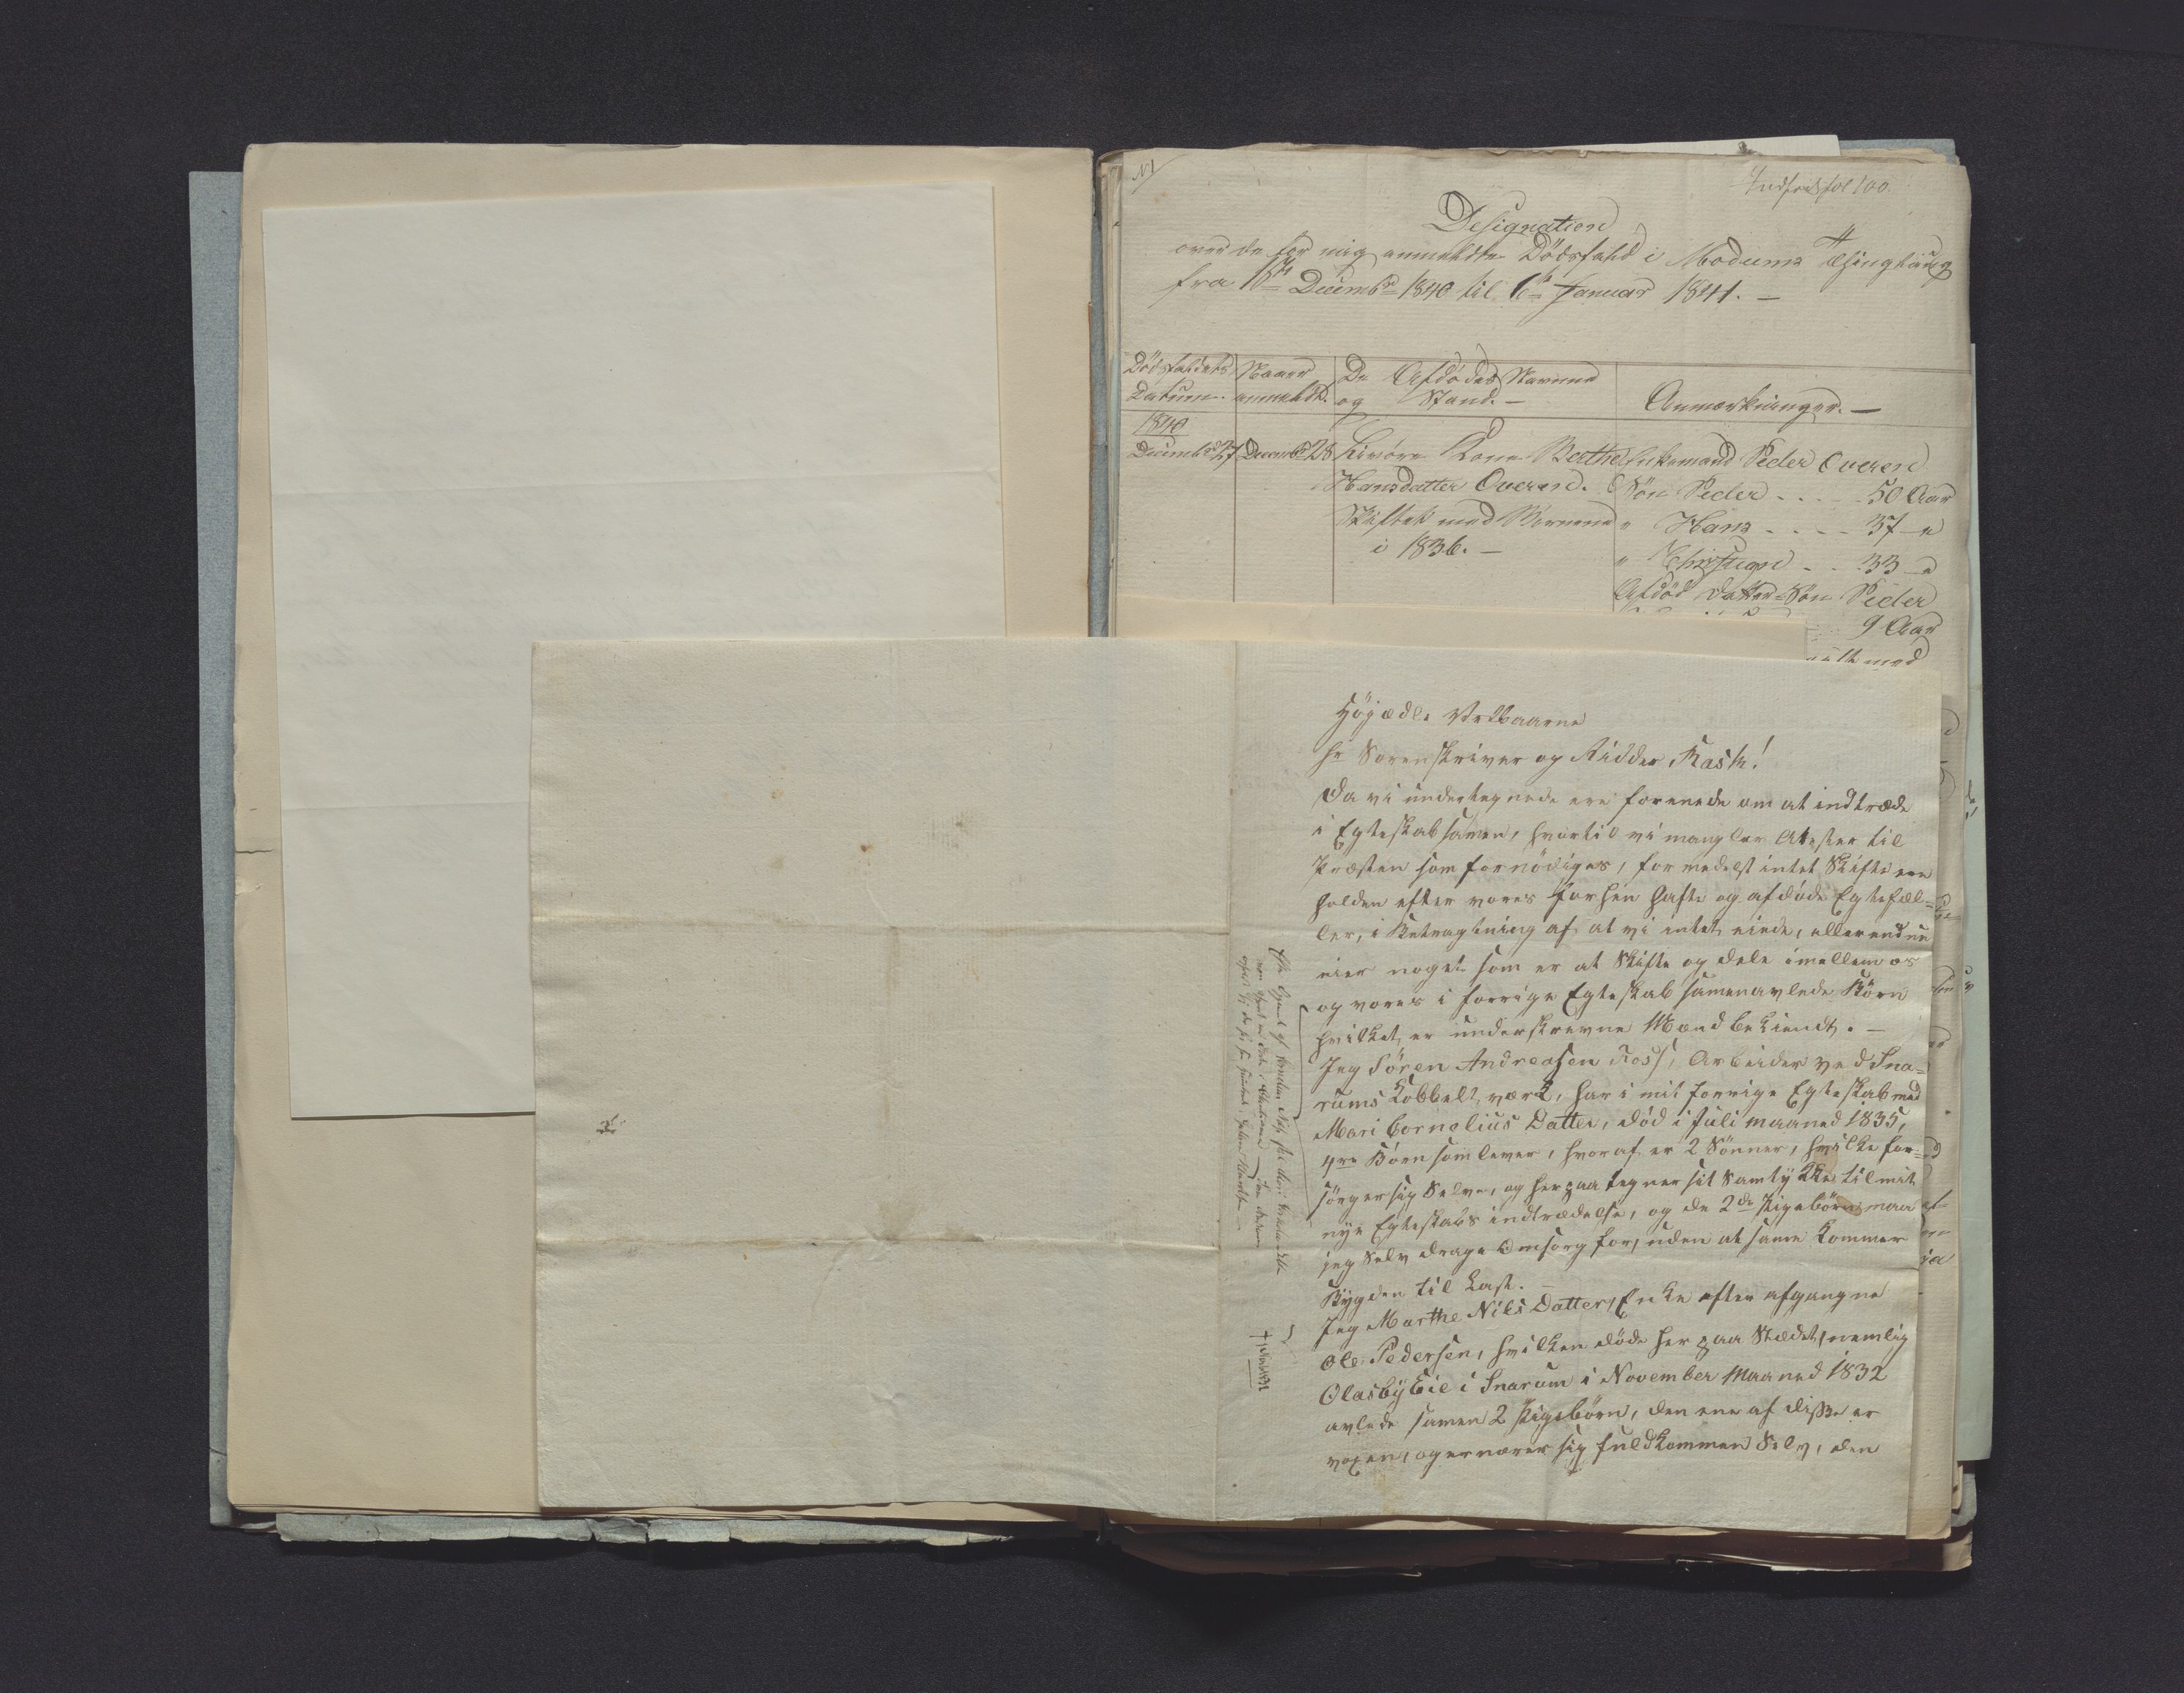 N1
Indført fol 100.
Designation
over de for mig anmeldte Dödsfald i Modums Thinglaug
fra 16de Decembr 1840 til 6te Januar 1841. —
Dödsfaldets Datum.
Naar anmeldt.
De Afdödes Navne og Stand. —
Anmærkninger. —
1840
Decembr 27
Decembr 28
Kone Berthe
Hansdatter Overen.
Skiftet med Börnene
i 1836. —
Enkemand Peder Overen
Sön Peder . . . . 50 Aar
" Hans . . . . 37 —"
" Christian . . 33 —"
Afdöd Datter-Sön Peder
9 Aar
med
Höjædle Velbaarne
Hr Sorenskriver og Ridder Rask!
Da vi undertegnede ere forenede om at indtræde
i Egteskab samen, hvortil vi mangler Atester til
Præsten som fornödiges, formedelst intet Skifte ere
holden efter vores forhen hafte og afdöde Egtefæl-
ler, i Betragtning af at vi intet eiede, eller endnu
eier noget som er at Skifte og dele imellem os
og vores i forrige Egteskab samenavlede Börn
hvilket er underskrevne Mænd bekiendt. —
Jeg Sören Andreasen Foss, Arbeider ved Sna-
rums Kobbelt værk, har i mit forrige Egteskab med
Mari Cornelius Datter, död i Juli maaned 1835,
4re Börn som lever, hvoraf er 2 Sönner, hvilke for-
sörger sig Selve, og her paa tegner sit Samtykke til mit
nye Egteskabs indtrædelse, og de 2de Pigebörn maa
jeg Selv drage Omsorg for, uden at same kommer
Bygden til Last. —
Jeg Marthe Nils Datter, Enke efter afgangne
Ole Pedersen, hvilken döde her paa Stædet, nemlig
Olasby Eie i Snarum i November Maaned 1832
avlede samen 2 Pigebörn, den ene af disse er
voxen, og ernærer sig fuldkommen Selv, den